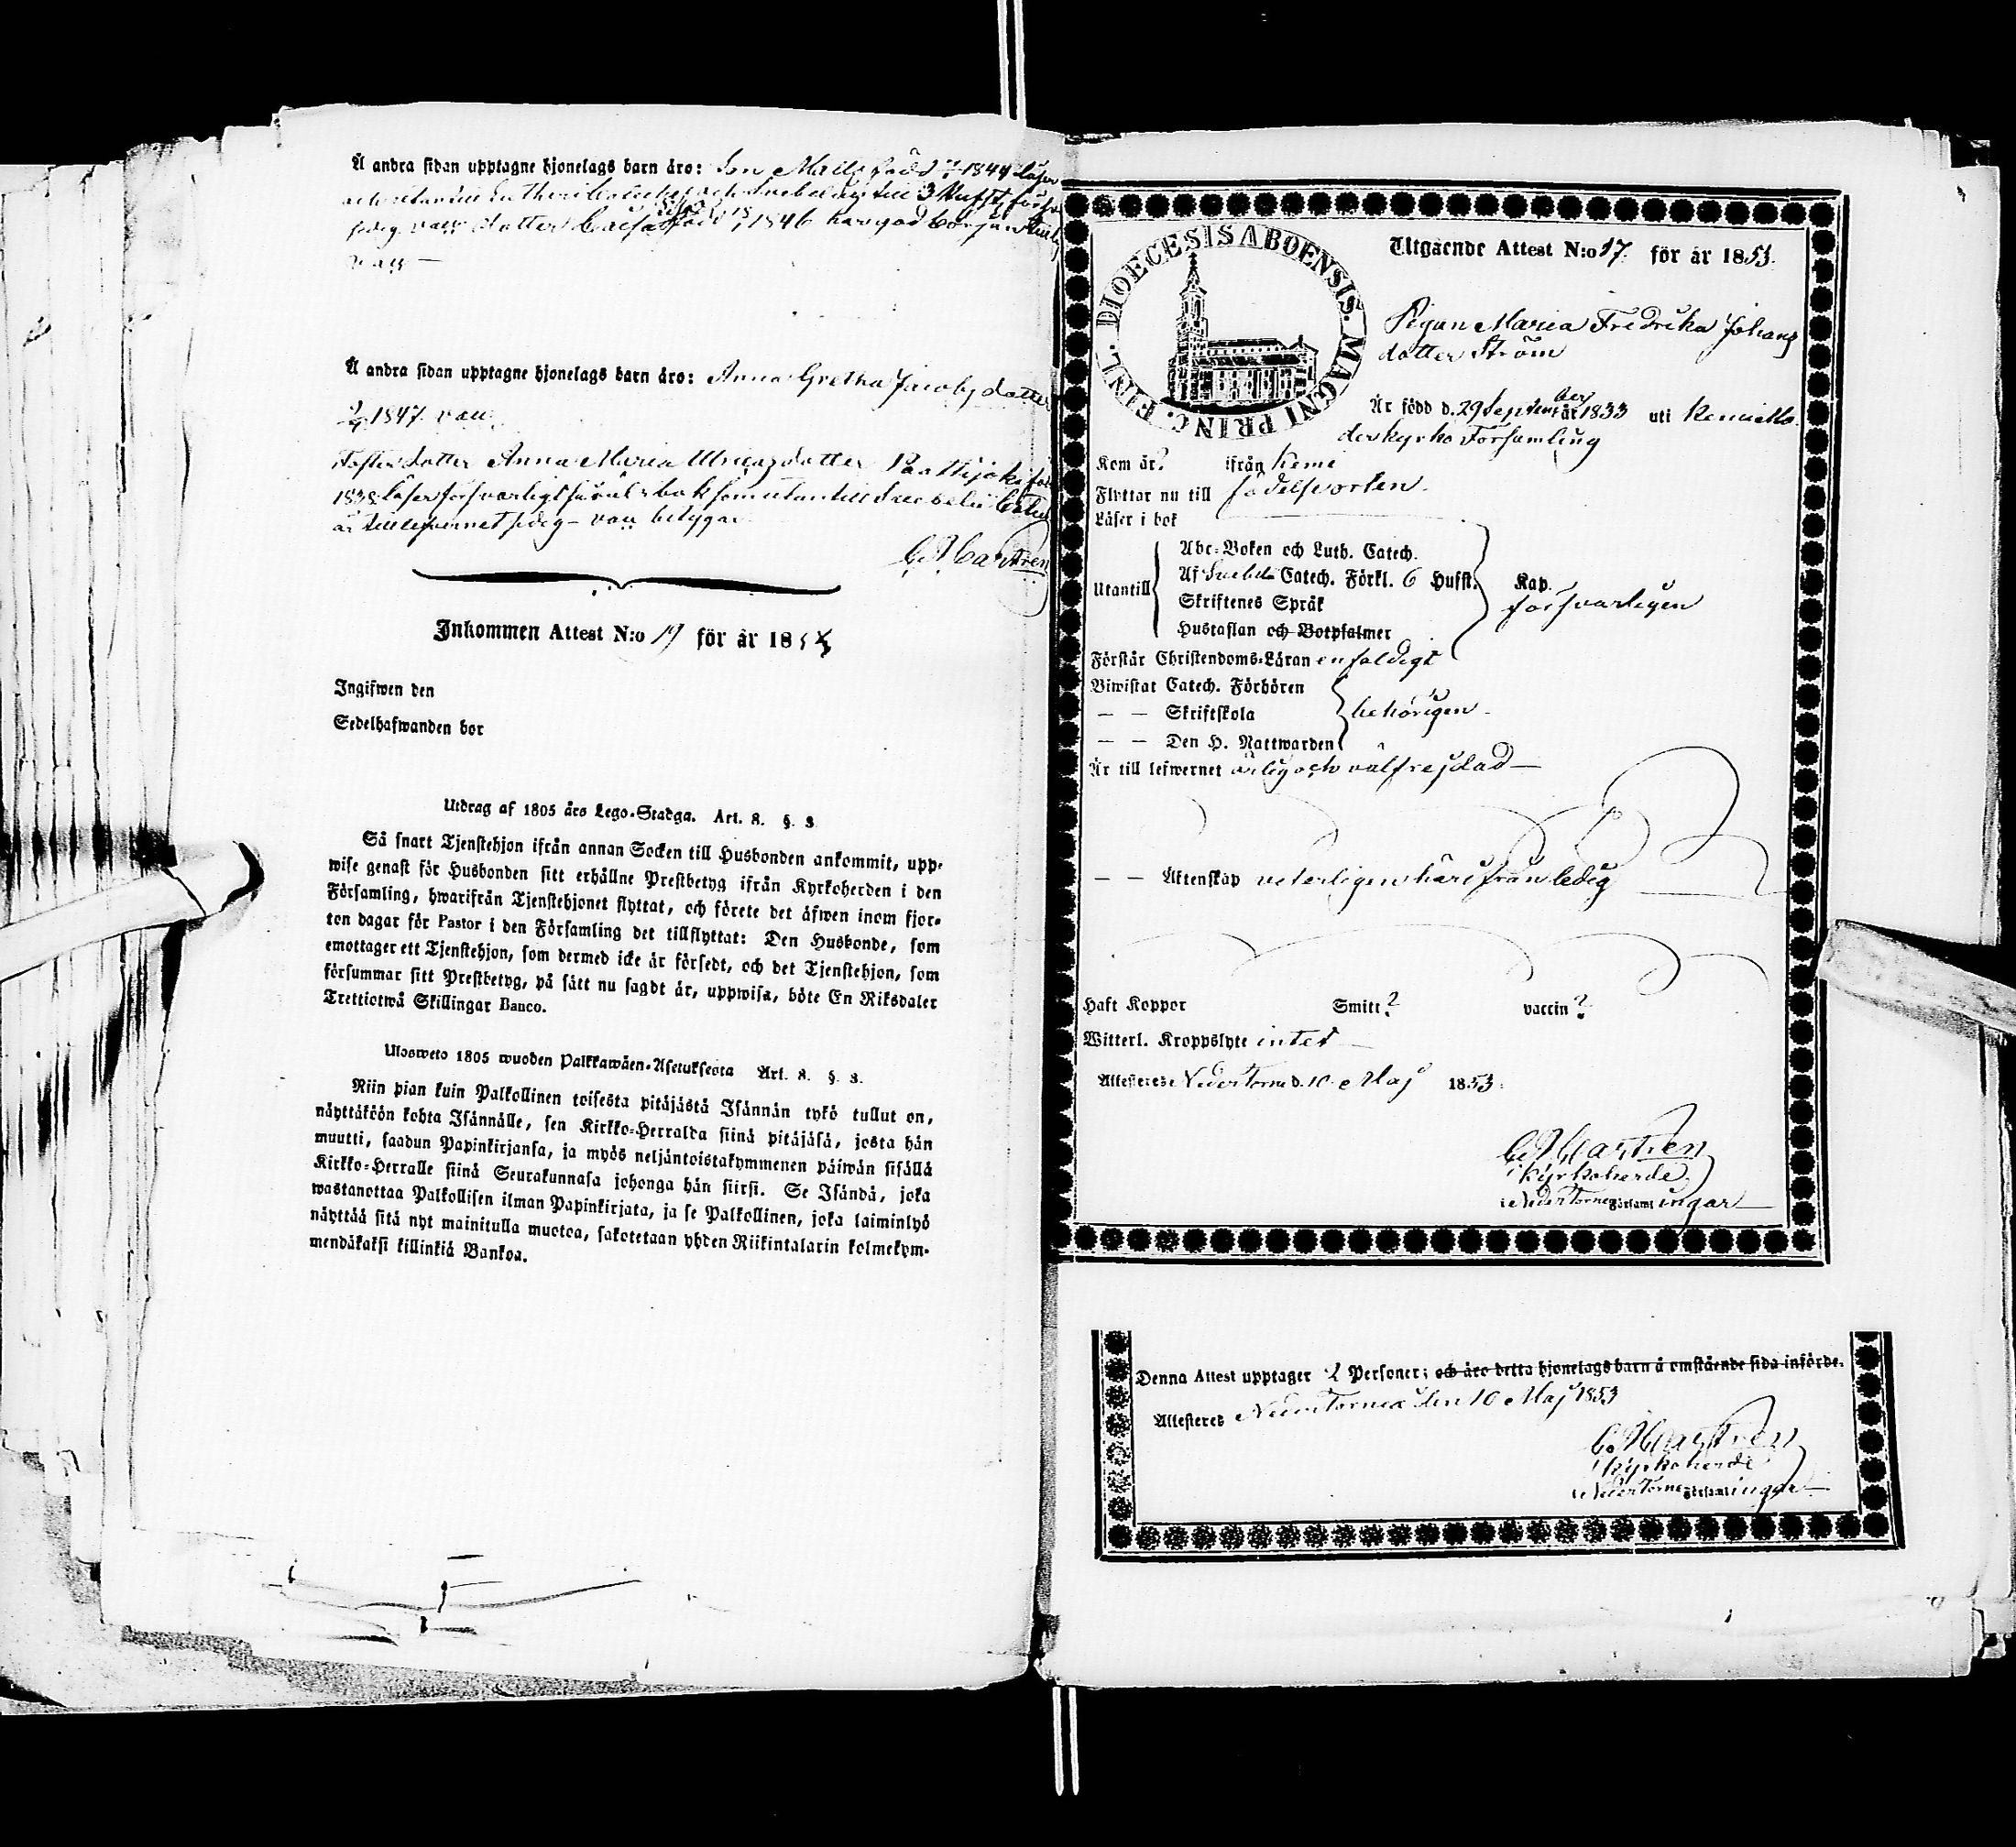 Å andra sidan upptagne hjonelags barn äro: Son Matts född 1844 läser
3 Hufst.
dotter 1846 har god början
vacc –
Å andra sidan upptagne hjonelags barn äro: Anna Gretha Jacobsdotter
1847. vacc.
Fosterdotter Anna Maria
1838 läser försvarligt såväl i bok som utantill
är till lefvernet sedig – vacc betygar
C. Castren
Inkommen Attest N:o 19 för år 185
Ingifwen den
Sedelhafwanden bor
Utdrag af 1805 års Lego-Stadga. Art. 8. §. 3
Så snart Tjenstehjon ifrån annan Socken till Husbonden ankommit, upp-
wise genast för Husbonden sitt erhållne Prestbetyg ifrån Kyrkoherden i den
Församling, hwarifrån Tjenstehjonet flyttat, och förete det äfwen inom fjor-
ton dagar för Pastor i den Församling det tillflyttat: Den Husbonde, som
emottager ett Tjenstehjon, som dermed icke är försedt, och det Tjenstehjon, som
försummar sitt Prestbetyg, på sätt nu sagdt är, uppwisa, böte En Riksdaler
Trettiotwå Skillingar Banco.
Ulosweto 1805 wuoden Palkkawäen-Asetuksesta Art. 8. §. 3.
Niin pian kuin Palkollinen toisesta pitäjästä Isännän tykö tullut on,
näyttäköön kohta Isännälle, sen Kirkko-Herralda siinä pitäjäsä, josta hän
muutti, saadun Papinkirjansa, ja myös neljäntoistakymmenen päiwän sisällä
Kirkko-Herralle siinä Seurakunnasa johonga hän siirsi. Se Isändä, joka
wastanottaa Palkollisen ilman Papinkirjata, ja se Palkollinen, joka laiminlyö
näyttää sitä nyt mainitulla muotoa, sakotetaan yhden Riikintalarin kolmekym-
mendäkaksi killinkiä Bankoa.
DIOECESIS ABOENSIS. MAGNI PRINC. FINL.
Utgående Attest N:o 17. för år 1853.
Pigan Maria Fredrika Johans
dotter Ström
Är född d. 29 September år 1833 uti Kemi Mo
derkyrko Församling
Kom år? ifrån Kemi
Flyttar nu till födelseorten.
Läser i bok
Abc-Boken och Luth. Catech.
Utantill Af Svebeli Catech. Förkl. 6 Hufst. Kap.
försvarligen
Skriftenes Språk
Hustaflan och Botpsalmer
Förstår Christendoms-Läran enfaldigt
Biwistat Catech. Förhören
— — Skriftskola behörigen –
— — Den H. Nattwarden
Är till lefwernet ärlig och välfrejdad —
— — Äktenskap veterligen härifrån ledig
Haft Koppor Smitt? vaccin?
Witterl. Kroppslyte intet
Attesteres Neder Torneå d. 10 Maj 1853.
C. Castren
Kyrkoherde
i Neder Torneå Församlingar
Denna Attest upptager 1 Personer; och äro detta hjonelags barn å omstående sida införde.
Attesteres Neder Torneå den 10 Maj 1853
C. Castren
Kyrkoherde
i Neder Torneå Församlingar